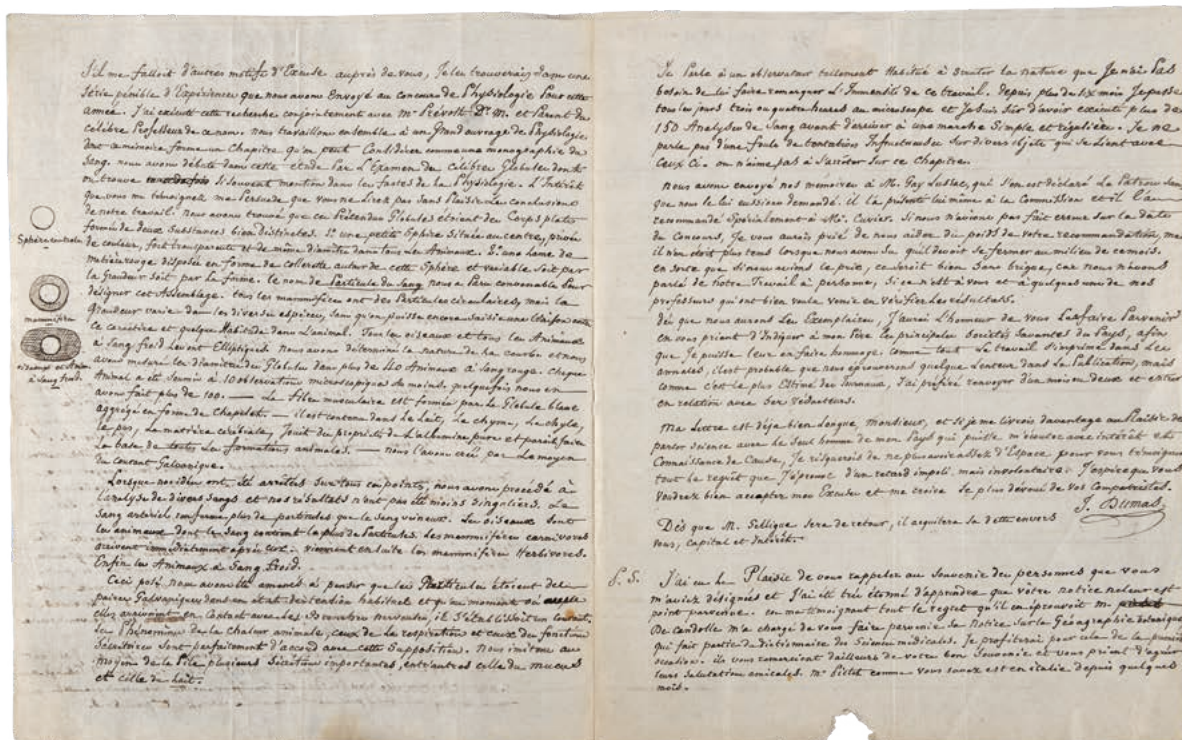 S'il me falloit d'autres motifs d'Excuse auprès de vous, Je les trouverais dans une
série pénible d'Expériences que nous avons Envoyé au concours de Physiologie Pour cette
année. J'ai exécuté cette recherche conjointement avec Mr Prévost Dr M. et Parent du
célèbre Professeur de ce nom. nous travaillons ensemble à un Grand ouvrage de Physiologie
dont ce mémoire forme un Chapitre qu'on peut Considérer comme une monographie du
Sang. nous avons débuté dans cette étude Par L'Examen des Célèbres Globules dont
on trouve si souvent mention dans les fastes de la Physiologie. L'Intérêt
que vous me témoignez me Persuade que vous ne Lirez pas Sans Plaisir Les conclusions
de notre travail. nous avons trouvé que ces Prétendus Globules étoient des Corps plats
formés de deux Substances bien Distinctes. 1° une petite Sphère Située au centre, privée
de couleur, fort transparente et de même diamètre dans tous Les Animaux. 2° une lame de
matière rouge disposée en forme de collerette autour de cette Sphère et variable Soit par
la Grandeur Soit par La forme. le nom de Particule du Sang nous a Paru convenable Pour
désigner cet Assemblage. tous les mammifères ont des Particules circulaires, mais la
Grandeur varie dans les diverses espèces, sans qu'on puisse encore saisir une liaison entre
ce caractère et quelque Habitude dans L'animal. Tous les oiseaux et tous les Animaux
à Sang froid Les ont Elliptiques. Nous avons déterminé la nature de la courbe et nous
avons mesuré les diamètres des Globules dans plus de 40 Animaux à Sang rouge. chaque
Animal a été Soumis à 10 observations microscopiques au moins, quelquefois nous en
avons fait plus de 100. — La fibre musculaire est formée par Le Globule blanc
aggrégé en forme de Chapelet. — il est contenu dans Le Lait, Le chyme, Le chyle,
le pus, La matière cérébrale, Jouit des propriétés de L'albumine pure et paroit faire
La base de toutes Les formations animales. — nous l'avons créé par Le moyen
du courant Galvanique.
Lorsque nos idées ont été arrêtées Sur tous ces points, nous avons procédé à
L'analyse de divers Sangs et nos résultats n'ont pas été moins Singuliers. Le
Sang artériel renferme plus de particules que le Sang veineux. Les oiseaux sont
les animaux dont le Sang contient la plus de Particules. Les mammifères carnivores
suivent immédiatement après eux. viennent ensuite les mammifères Herbivores.
Enfin les Animaux à Sang froid.
Ceci posé nous avons été amenés à penser que les Particules étoient des
paires Galvaniques dans un état de tension habituel et qu'au moment où
elles arrivoient en Contact avec Les nerveuses, il S'établissoit un courant.
Les Phénomènes de la chaleur animale, ceux de La respiration et ceux des fonctions
Sécrétoires Sont parfaitement d'accord avec cette Supposition. Nous imitons au
moyen de la Pile plusieurs Sécrétions importantes, entr'autres celle du mucus
et celle du lait.
Sphère centrale
mammifère
oiseaux et Anim.
à Sang froid.
Je Parle à un observateur tellement Habitué à Scruter la nature que Je n'ai Pas
besoin de lui faire remarquer L'Immensité de ce travail. depuis plus de six mois Je passe
tous les jours trois ou quatre heures au microscope et Je suis Sûr d'avoir exécuté plus de
150 Analyses de Sang avant d'arriver à une marche Simple et régulière. Je ne
parle pas d'une foule de tentatives Infructueuses Sur divers objets qui se Lient avec
Ceux Ci. on n'aime pas à S'arrêter Sur ce Chapitre.
nous avons envoyé nos mémoires à M. Gay Lussac, qui S'en est déclaré Le Patron sans
que nous le lui eussions demandé. il l'a présenté lui même à la Commission et il l'a
recommandé Spécialement à Mr. Cuvier. Si nous n'avions pas fait erreur sur la date
du Concours, Je vous aurais prié de nous aider du poids de votre recommandation, mais
il n'en étoit plus tems lorsque nous avons Su qu'il devoit se fermer au milieu de ce mois.
en sorte que Si nous avions le prix, ce seroit bien Sans brigue, car nous n'avons
parlé de notre Travail à personne, Si ce n'est à vous et à quelques uns de nos
professeurs qui ont bien voulu venir en vérifier Les résultats.
dès que nous aurons Les Exemplaires, J'aurai L'honneur de vous Les faire Parvenir
en vous priant d'Indiquer à mon Père les principales Sociétés Savantes du Pays, afin
que Je puisse leur en faire hommage. comme tout Le travail S'imprime dans Les
annales, il est probable que nous éprouverons quelque Lenteur dans La Publication, mais
comme c'est le plus Estimé des Journaux, J'ai préféré renvoyer d'un mois ou deux et entrer
en relation avec Ses rédacteurs.
Ma Lettre est déja bien Longue, Monsieur, et Si je me Livrois davantage au Plaisir de
parler Science avec Le Seul homme de mon Pays qui puisse m'écouter avec intérêt et
Connaissance de Cause, Je risquerois de ne plus avoir assez d'Espace pour vous témoigner
tout le regret que J'éprouve d'un retard impoli, mais involontaire. J'espère que vous
voudrez bien accepter mes Excuses et me croire Le plus dévoué de vos Compatriotes.
J. Dumas
Dès que M. Sellique sera de retour, il acquitera Sa dette envers
vous, capital et Intérêt.
P.S. J'ai eu Le Plaisir de vous rappeler au Souvenir des personnes que vous
m'aviez désignées et J'ai été très étonné d'apprendre que votre notice ne leur est
point parvenue. en me témoignant tout le regret qu'il en éprouvoit M.
De Candolle m'a chargé de vous faire parvenir Sa Notice Sur La Géographie botanique
qui fait partie du dictionnaire des Sciences médicales. Je profiterai pour cela de la première
occasion. ils vous remercient d'ailleurs de votre bon Souvenir et vous prient d'agréer
leurs salutations amicales. Mr Pictet comme vous savez est en italie depuis quelques
mois.